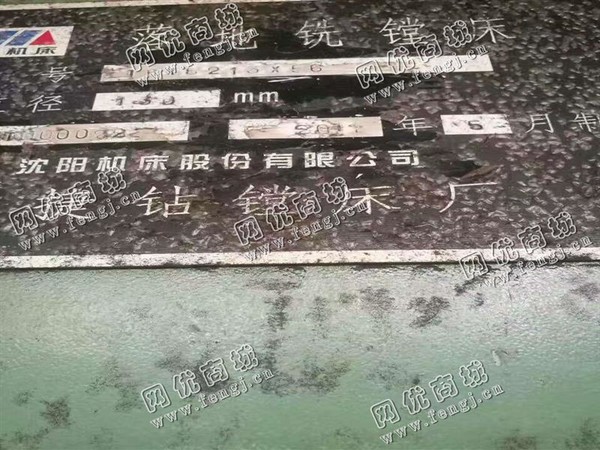 机床
落地铣镗床
号 215X56
径 130 mm
年 6 月 制
沈阳机床股份有限公司
钻镗床厂
网优商城
www.fengj.cn
网优商城
www.fengj.cn
网优商城
www.fengj.cn
网优商城
www.fengj.cn
网优商城
www.fengj.cn
网优商城
www.fengj.cn
网优商城
www.fengj.cn
网优商城
www.fengj.cn